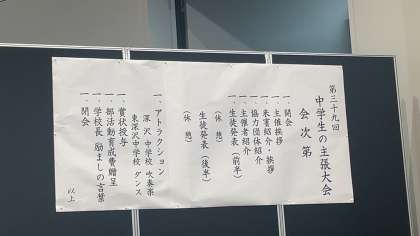 第三十九回
中学生の主張大会
会次第
一、開会
一、主催挨拶
一、来賓紹介・挨拶
一、協力団体紹介
一、主催者紹介
一、生徒発表（前半）
（休憩）
生徒発表（後半）
（休憩）
一、アトラクション
深沢中学校 吹奏楽
東深沢中学校 ダンス
一、賞状授与
一、部活動育成費贈呈
一、学校長 励ましの言葉
一、閉会
以上